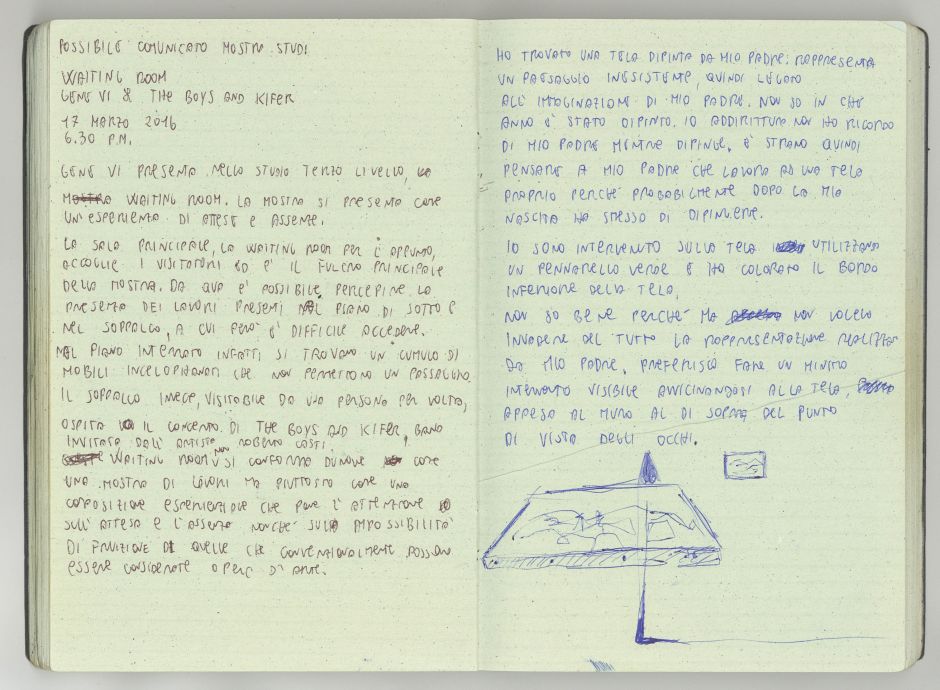 POSSIBILE COMUNICATO MOSTRA STUDI
WAITING ROOM
GENE VI & THE BOYS AND KIFER
17 MARZO 2016
6.30 P.M.
GENE VI PRESENTA NELLO STUDIO TERZO LIVELLO, LA
MOSTRA WAITING ROOM. LA MOSTRA SI PRESENTA COME
UN'ESPERIENZA DI ATTESE E ASSENZE.
LA SALA PRINCIPALE, LA WAITING ROOM PER L'APPUNTO,
ACCOGLIE I VISITATORI ED E' IL FULCRO PRINCIPALE
DELLA MOSTRA. DA QUA E' POSSIBILE PERCEPIRE LA
PRESENZA DEI LAVORI PRESENTI NEL PIANO DI SOTTO E
NEL SOPPALCO, A CUI PERO' E' DIFFICILE ACCEDERE.
NEL PIANO INTERRATO INFATTI SI TROVANO UN CUMULO DI
MOBILI INCELOPHANATI CHE NON PERMETTONO UN PASSAGGIO.
IL SOPPALCO INVECE, VISITABILE DA UNA PERSONA PER VOLTA,
OSPITA IL CONCERTO DI THE BOYS AND KIFER, BAND
INVITATA DALL'ARTISTA ROBERTO CASTI.
WAITING ROOM NON SI CONFORMA DUNQUE COME
UNA MOSTRA DI LAVORI MA PIUTTOSTO COME UNA
COMPOSIZIONE ESPERIENZIALE CHE PONE L'ATTENZIONE
SULL'ATTESA E L'ASSENZA NONCHÉ SULLA IMPOSSIBILITÀ
DI FRUIZIONE DI QUELLE CHE CONVENZIONALMENTE POSSONO
ESSERE CONSIDERATE OPERE D'ARTE.
HO TROVATO UNA TELA DIPINTA DA MIO PADRE: RAPPRESENTA
UN PAESAGGIO INESISTENTE, QUINDI LEGATO
ALL'IMMAGINAZIONE DI MIO PADRE. NON SO IN CHE
ANNO E' STATO DIPINTO. IO ADDIRITTURA NON HO RICORDO
DI MIO PADRE MENTRE DIPINGE, È STRANO QUINDI
PENSARE A MIO PADRE CHE LAVORA AD UNA TELA
PROPRIO PERCHE' PROBABILMENTE DOPO LA MIA
NASCITA HA SMESSO DI DIPINGERE.
IO SONO INTERVENUTO SULLA TELA UTILIZZANDO
UN PENNARELLO VERDE E HO COLORATO IL BORDO
INFERIORE DELLA TELA.
NON SO BENE PERCHÉ MA NON VOLEVO
INVADERE DEL TUTTO LA RAPPRESENTAZIONE REALIZZATA
DA MIO PADRE, PREFERISCO FARE UN MINIMO
INTERVENTO VISIBILE AVVICINANDOSI ALLA TELA,
APPESA AL MURO AL DI SOPRA DEL PUNTO
DI VISTA DEGLI OCCHI.